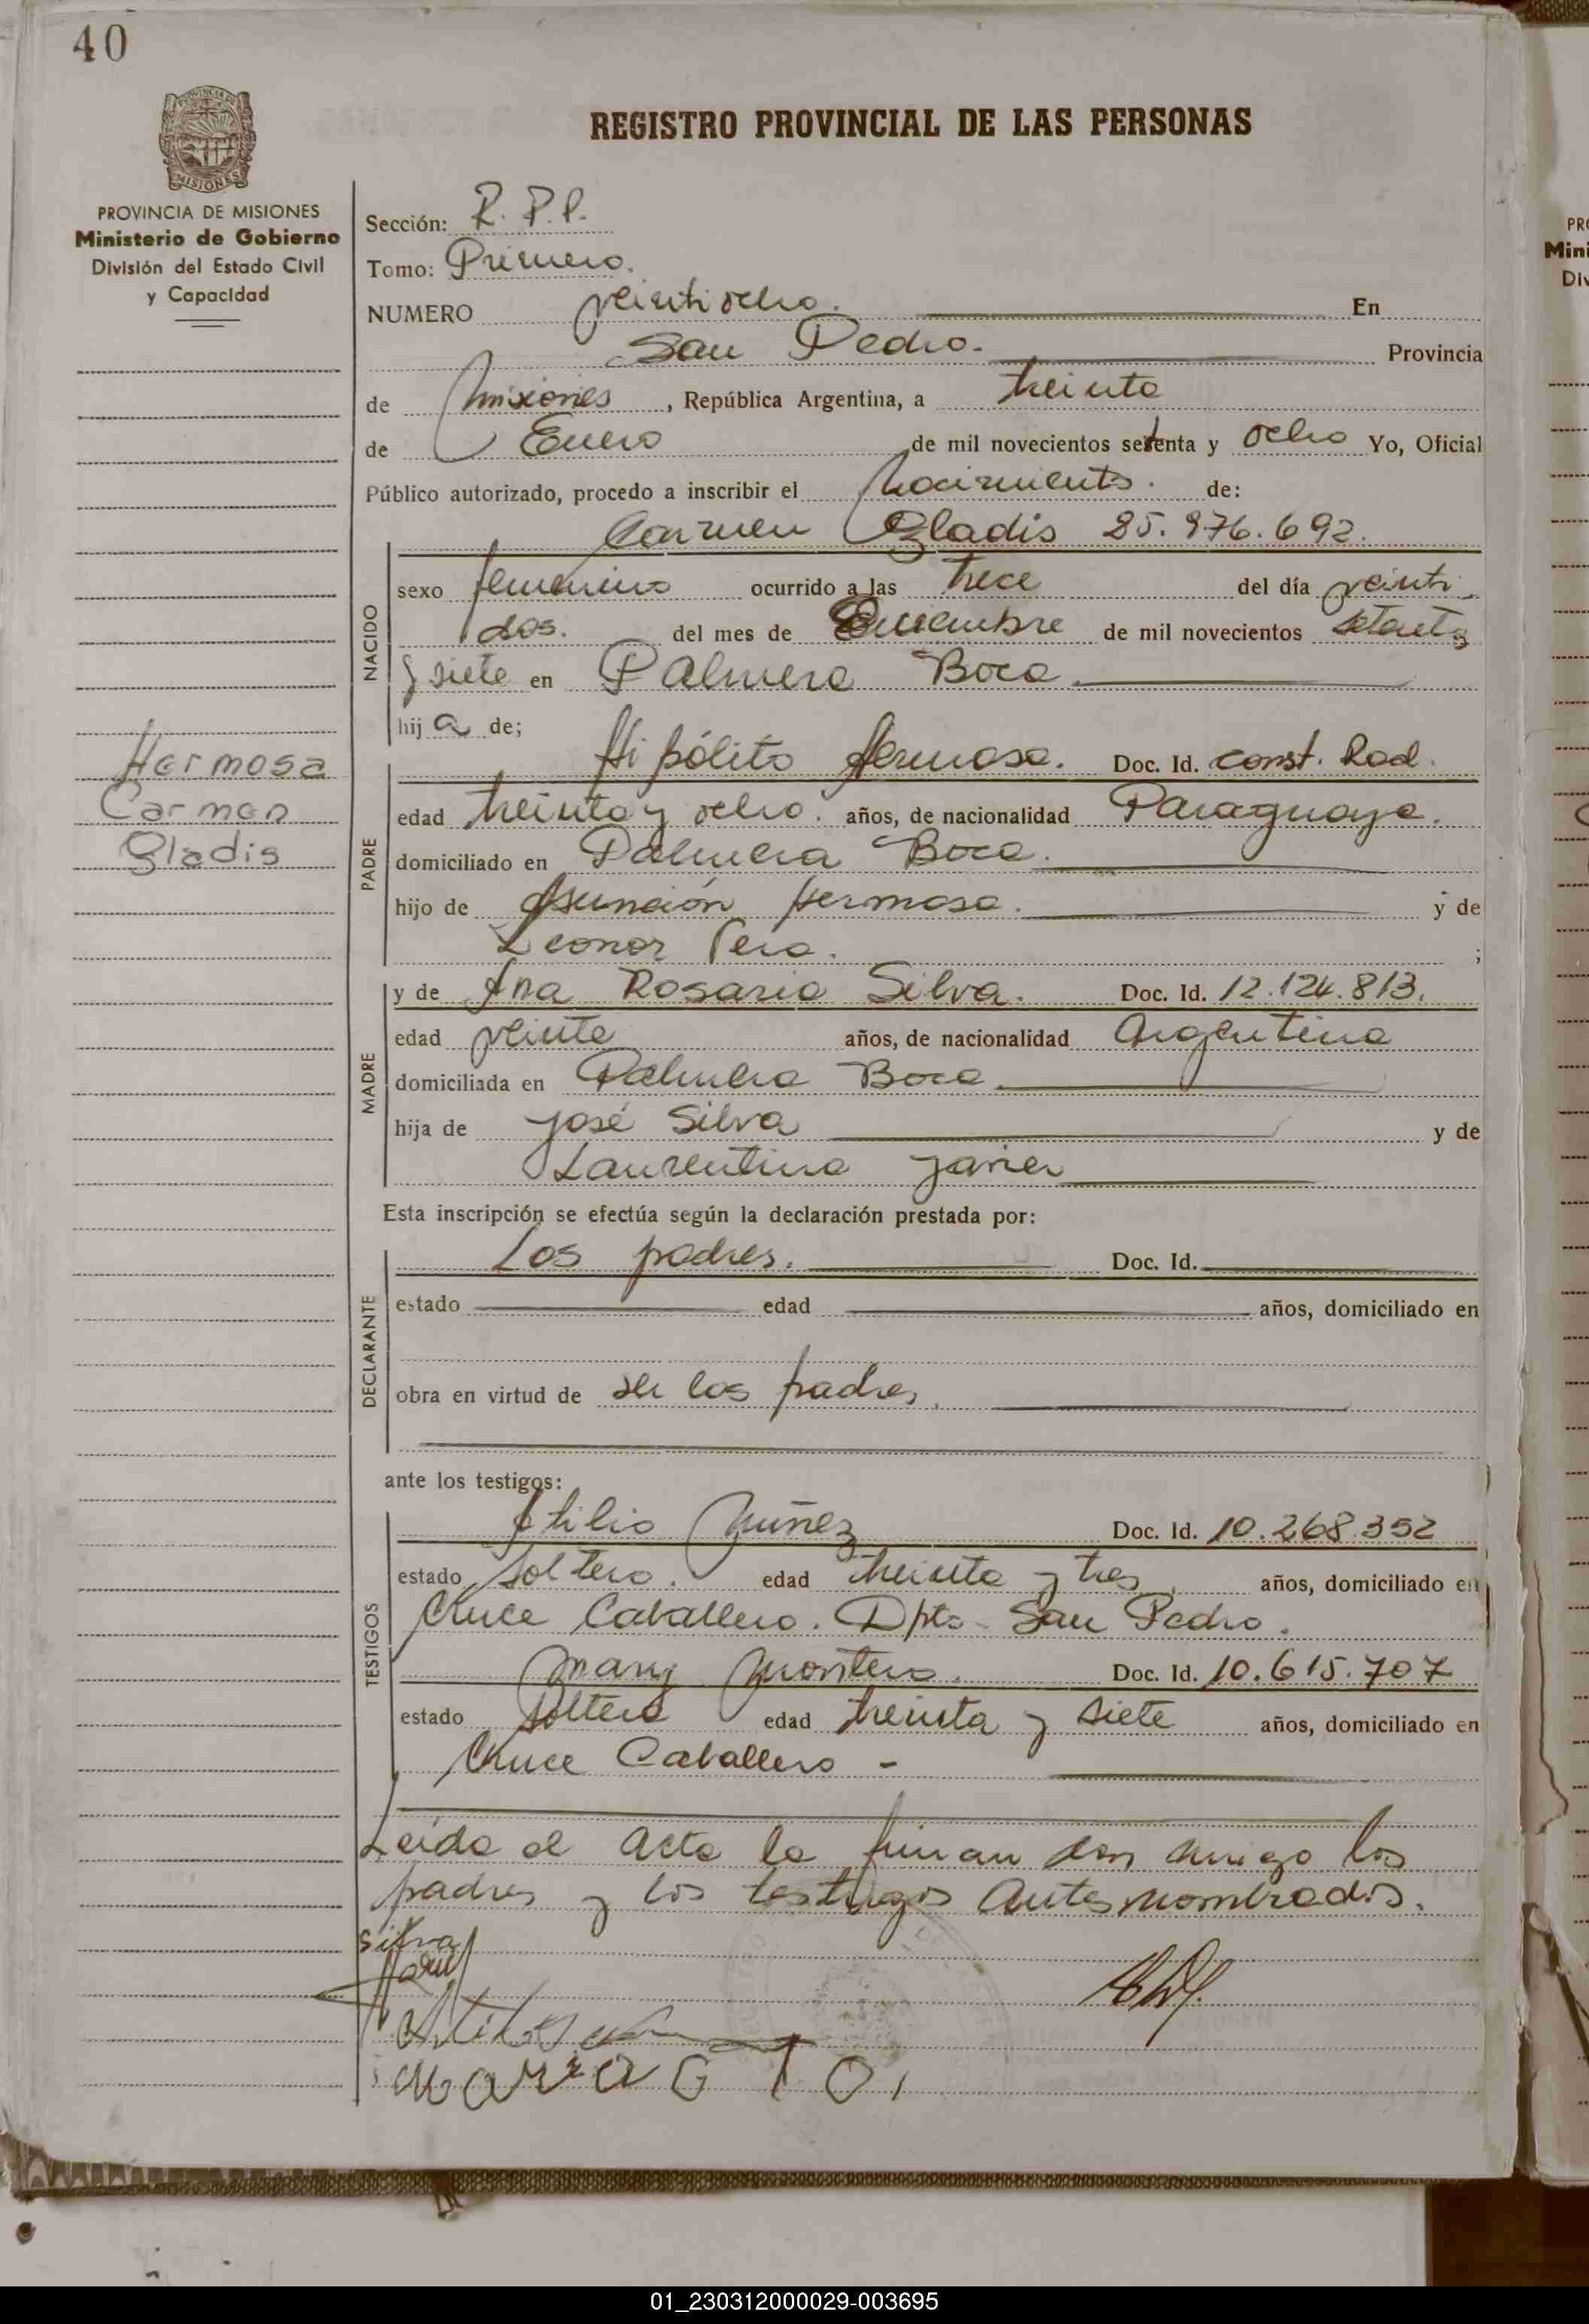 40
REGISTRO PROVINCIAL DE LAS PERSONAS
PROVINCIA DE MISIONES
Ministerio de Gobierno
División del Estado Civil
y Capacidad
Sección: R. P. P.
Tomo: Primero.
NUMERO veintiocho. En
San Pedro. Provincia
de Misiones, República Argentina, a treinta
de Enero de mil novecientos setenta y ocho Yo, Oficial
Público autorizado, procedo a inscribir el Nacimiento. de:
Carmen Gladis 25.976.692.
NACIDO
sexo femenino ocurrido a las trece del día veinti
dos. del mes de de mil novecientos setenta
y siete en Palmera Boca
hija de;
Hermosa
Carmen
Gladis
PADRE
Hipólito Hermosa. Doc. Id. const. Rad.
edad treinta y ocho. años, de nacionalidad Paraguaya.
domiciliado en Palmera Boca.
hijo de Asunción Hermosa. y de
Leonor Vera. ;
MADRE
y de Ana Rosario Silva. Doc. Id. 12.124.813.
edad veinte años, de nacionalidad Argentina
domiciliada en Palmera Boca
hija de José Silva y de
Laurentina Javier
Esta inscripción se efectúa según la declaración prestada por:
DECLARANTE
Los padres. Doc. Id.
estado edad años, domiciliado en
obra en virtud de ser los padres.
ante los testigos:
TESTIGOS
Atilio Nuñez Doc. Id. 10.268.352
estado soltero. edad treinta y tres. años, domiciliado en
Cruce Caballero. Dpto- San Pedro.
Mary Montero. Doc. Id. 10.615.707
estado soltera edad treinta y siete años, domiciliado en
Cruce Caballero -
Leida el Acta la firman con migo los
padres y los testigos Antes nombrados.
Silva
01_230312000029-003695